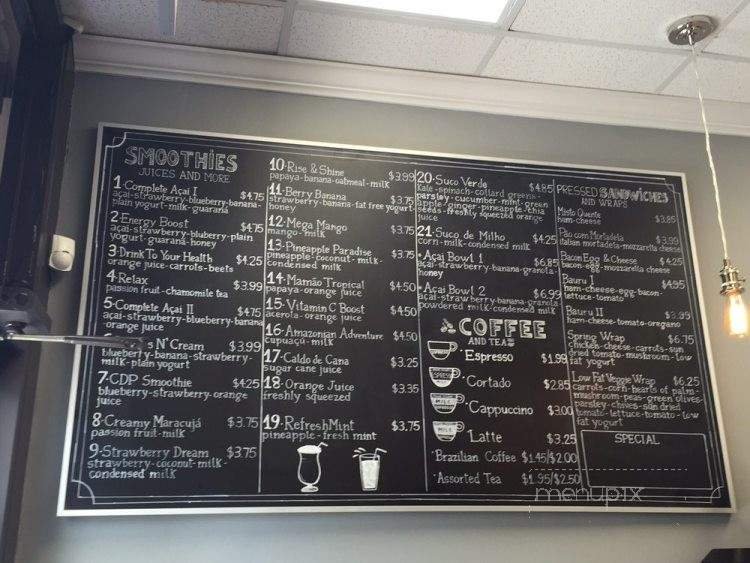 SMOOTHIES
JUICES AND MORE
1-Complete Açaí I $4.75
açaí-strawberry-blueberry-banana-
plain yogurt-milk-guarana
2-Energy Boost $4.75
açaí-strawberry-bluberry-plain
yogurt-guaraná-honey
3-Drink To Your Health $4.25
orange juice-carrots-beets
4-Relax $3.99
passion fruit-chamomile tea
5-Complete Açaí II $4.75
açaí-strawberry-blueberry-banana
-orange juice
N' Cream $3.99
blueberry-banana-strawberry-
milk-plain yogurt
7-CDP Smoothie $4.25
blueberry-strawberry-orange
juice
8-Creamy Maracujá $3.75
passion fruit-milk
9-Strawberry Dream $3.75
strawberry-coconut-milk-
condensed milk
10-Rise & Shine $3.99
papaya-banana-oatmeal-milk
11-Berry Banana $3.75
strawberry-banana-fat free yogurt-
honey
12-Mega Mango $3.75
mango-milk
13-Pineapple Paradise $3.75
pineapple-coconut-milk-
condensed milk
14-Mamão Tropical $4.50
papaya-orange juice
15-Vitamin C Boost $4.50
acerola-orange juice
16-Amazonian Adventure $4.50
cupuaçu-milk
17-Caldo de Cana $3.25
sugar cane juice
18-Orange Juice $3.35
freshly squeezed
19-RefreshMint $3.75
pineapple-fresh mint
20-Suco Verde $4.85
Kale-spinach-collard greens-
parsley-cucumber-mint-green
apple-ginger-pineapple-chia
seeds-freshly squeezed orange
juice
21-Suco de Milho $4.25
corn-milk-condensed milk
•Açaí Bowl 1 $6.85
açaí-strawberry-banana-granola-
honey
•Açaí Bowl 2 $6.99
açaí-strawberry-banana-granola
powdered milk-condensed milk
COFFEE
AND TEAS
•Espresso $1.98
•Cortado $2.85
•Cappuccino $3.00
•Latte $3.25
•Brazilian Coffee $1.45/$2.00
•Assorted Tea $1.95/$2.50
PRESSED SANDWICHES
AND WRAPS
Misto Quente $3.85
ham-cheese
Pão com Mortadela $3.99
italian mortadela-mozzarella cheese
Bacon Egg & Cheese $4.25
bacon-egg-mozzarella cheese
Bauru I $4.95
ham-cheese-egg-bacon-
lettuce-tomato
Bauru II $3.99
ham-cheese-tomato-oregano
Spring Wrap $6.75
chicken-cheese-carrots-sun
dried tomato-mushroom-low
fat yogurt
Low Fat Veggie Wrap $6.25
carrots-corn-hearts of palm-
mushroom-peas-green olives-
parsley-chives-sun dried
tomato-lettuce-tomato-low
fat yogurt
SPECIAL
menupix